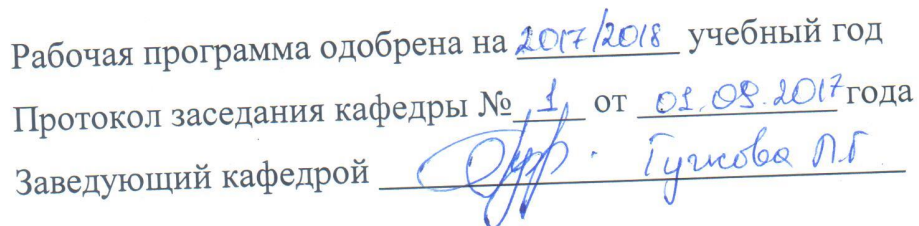 Рабочая программа одобрена на 2017/2018 учебный год
Протокол заседания кафедры № 1 от 01.09.2017 года
Заведующий кафедрой Гучкова П.Г